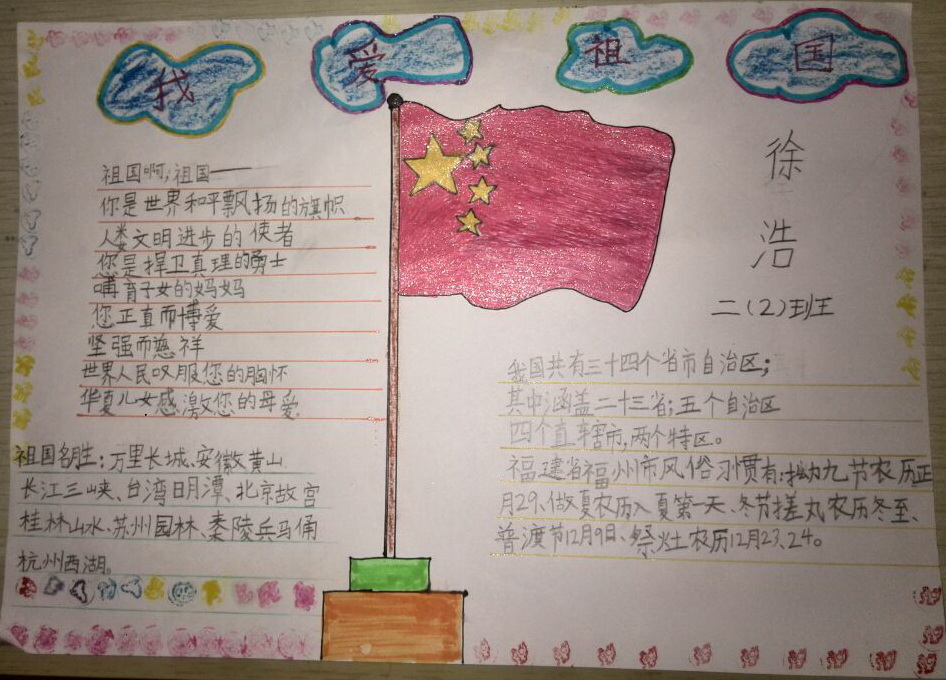 我爱祖国
徐浩
二(2)班
祖国啊,祖国——
你是世界和平飘扬的旗帜
人类文明进步的使者
您是捍卫真理的勇士
哺育子女的妈妈
您正直而博爱
坚强而慈祥
世界人民叹服您的胸怀
华夏儿女感激您的母爱
祖国名胜:万里长城、安徽黄山
长江三峡、台湾日月潭、北京故宫
桂林山水、苏州园林、秦陵兵马俑
杭州西湖。
我国共有三十四个省市自治区;
其中涵盖二十三省;五个自治区
四个直辖市,两个特区。
福建省福州市风俗习惯有:拗九节农历正
月29、做夏农历入夏第一天、冬节搓丸农历冬至、
普渡节12月9日、祭灶农历12月23、24。